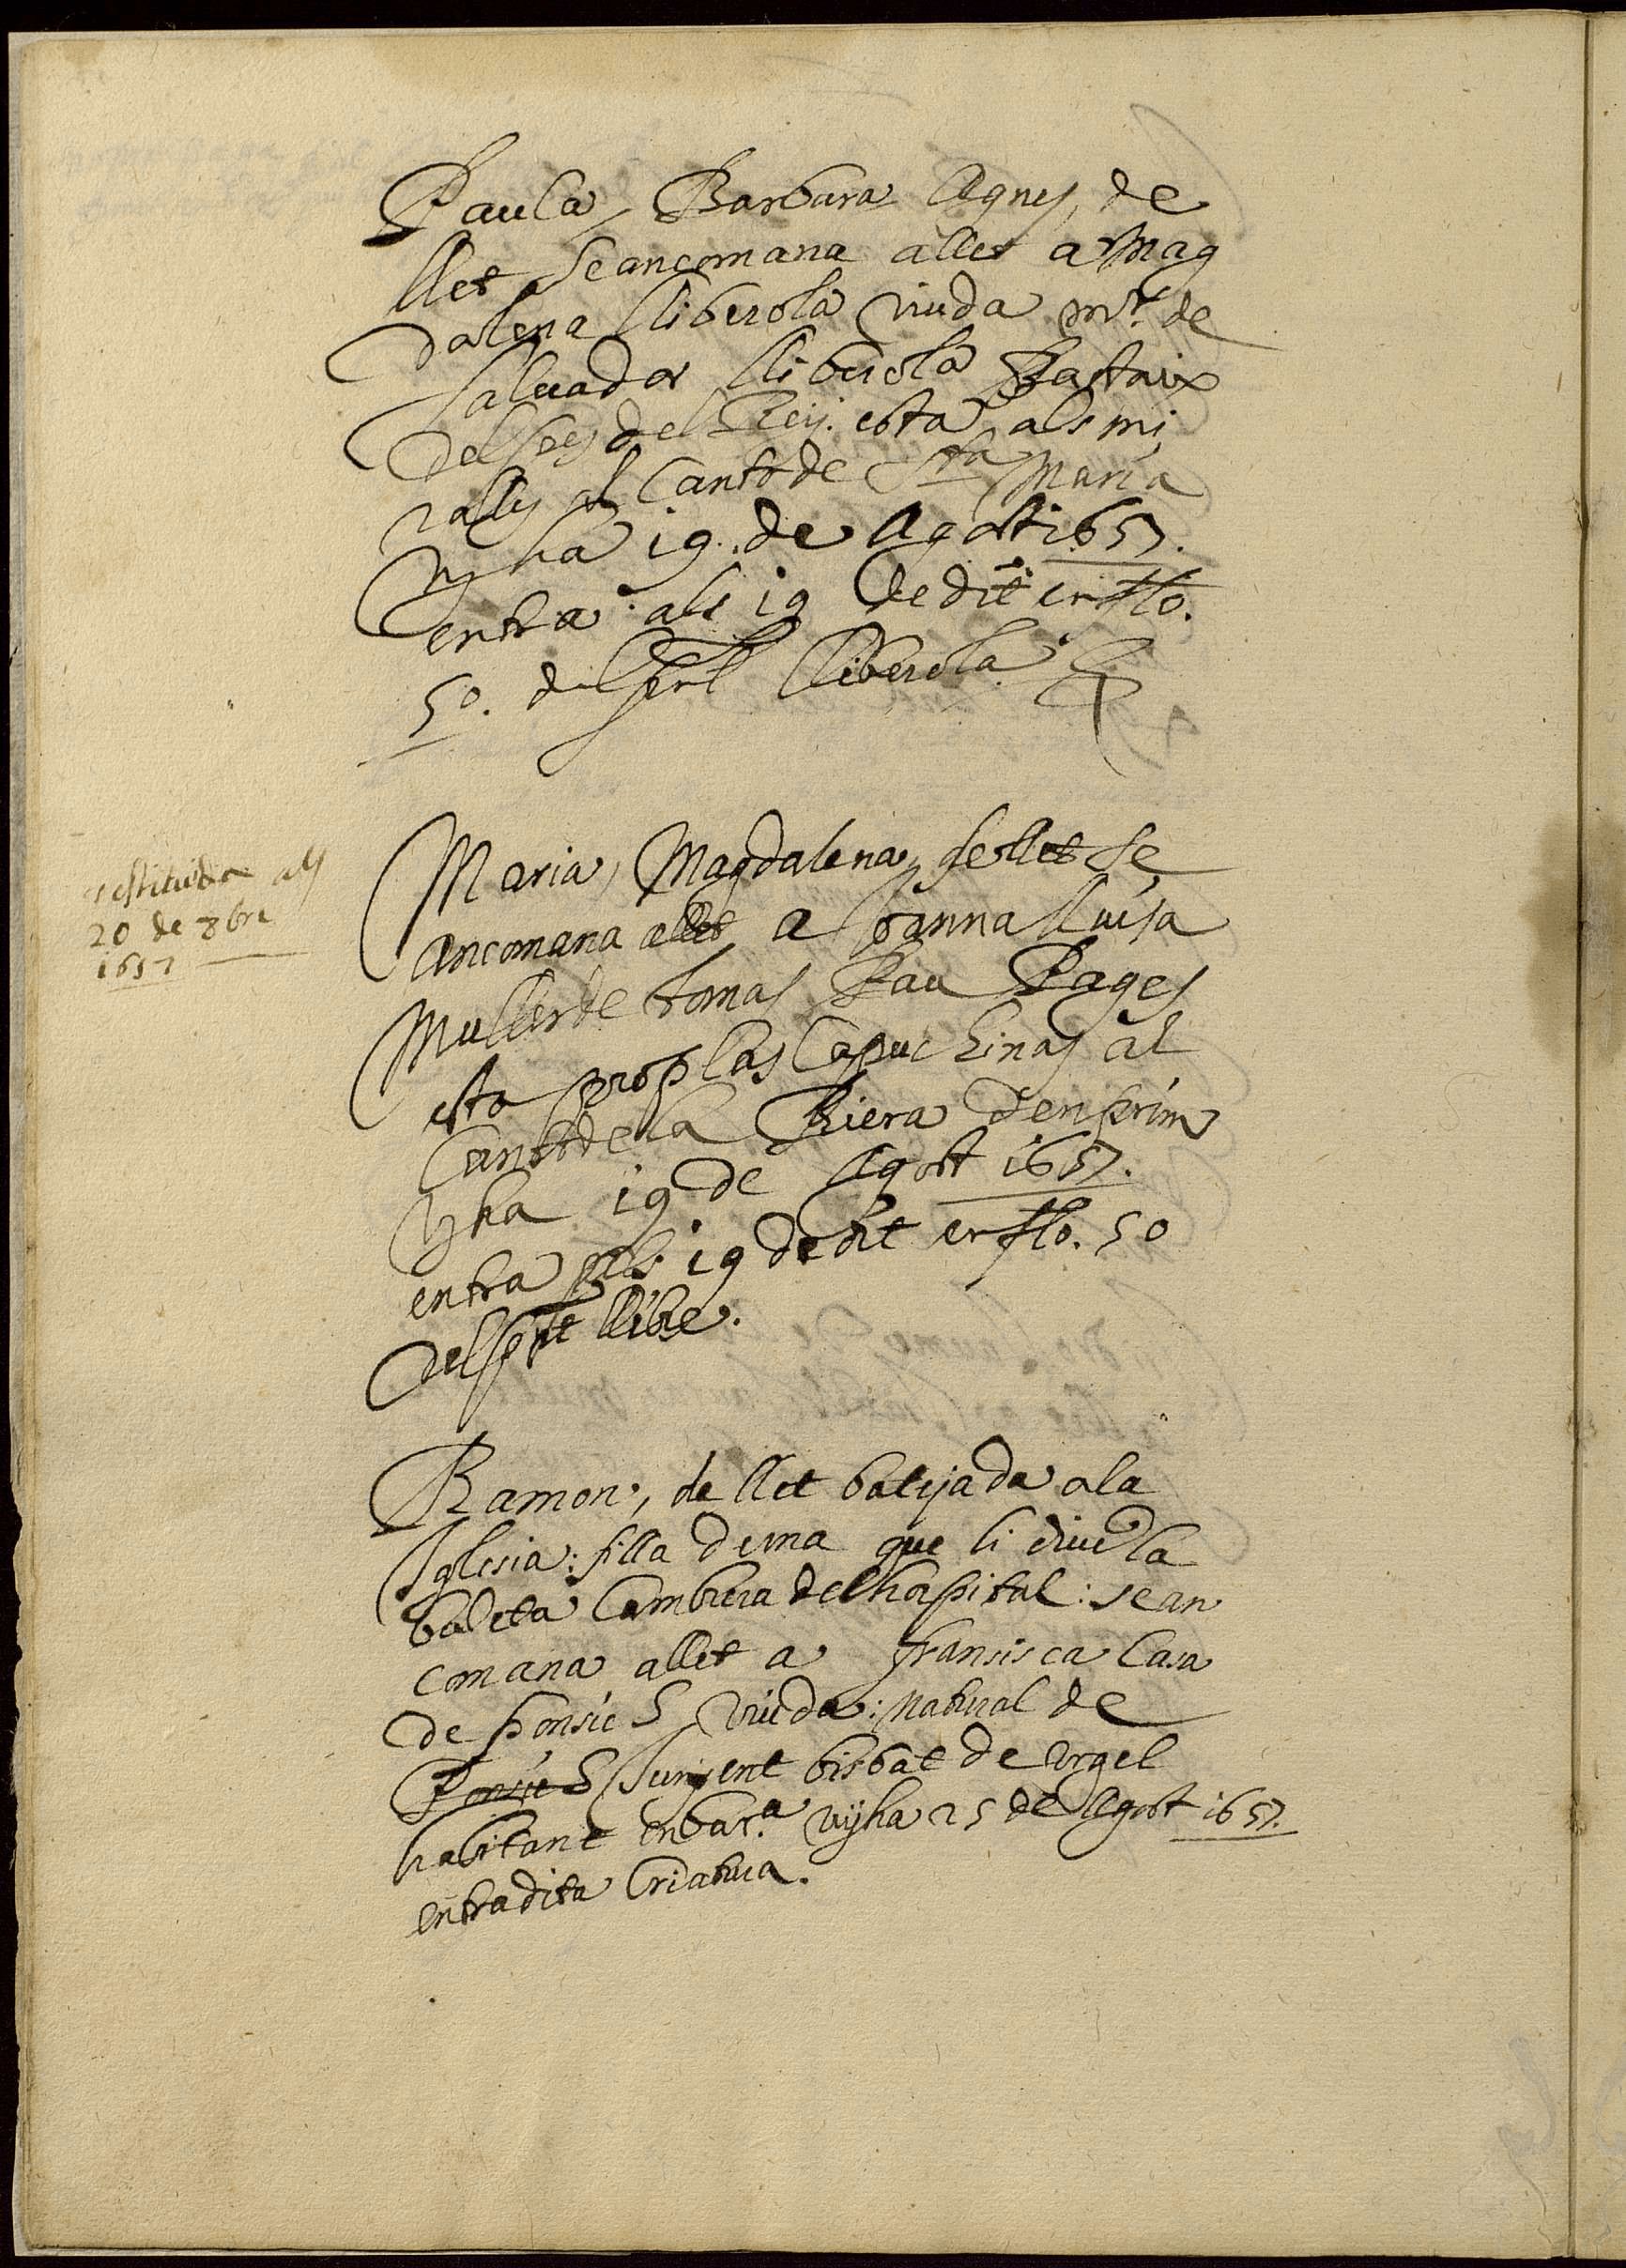 Paula, Barbara Agnes, de
llet Se ancomana allet a Mag
dalena lliberola viuda mr. de
saluador lliberola Bastaix
del pes del Reij. esta als mi
ralls al Canto de Sta Maria
vj ha 19. de Agost 1657.
entra als 19 de dit en flo.
50. del pnt lliberola
restituida als
20 de 8bre
1657
Maria, Magdalena, de llet se
ancomana allet a Joanna lluisa
Muller de tomas Pau Pages
esta prop las Caputxinas al
Canto de la Riera den prim
vj ha 19 de Agost 1657.
entra als 19 de dit en flo. 50
del pnt llibre.
Ramon, de llet batejada a la
Iglesia: filla de una que li diuen la
Cambrera del hospital: se an
comana allet a fransisca Casa
de ponsic S viuda: natural de
Ponsic S bisbat de urgel
habitant en bara. vij ha 25 de Agost 1657.
entra dita Criatura.